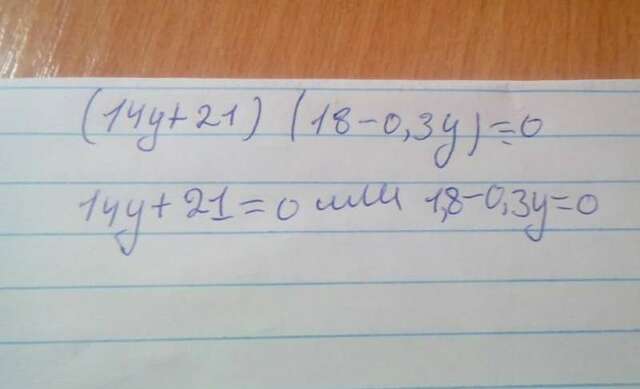 (14y+21) (18-0,3y)=0
14y+21=0 или 1,8-0,3y=0